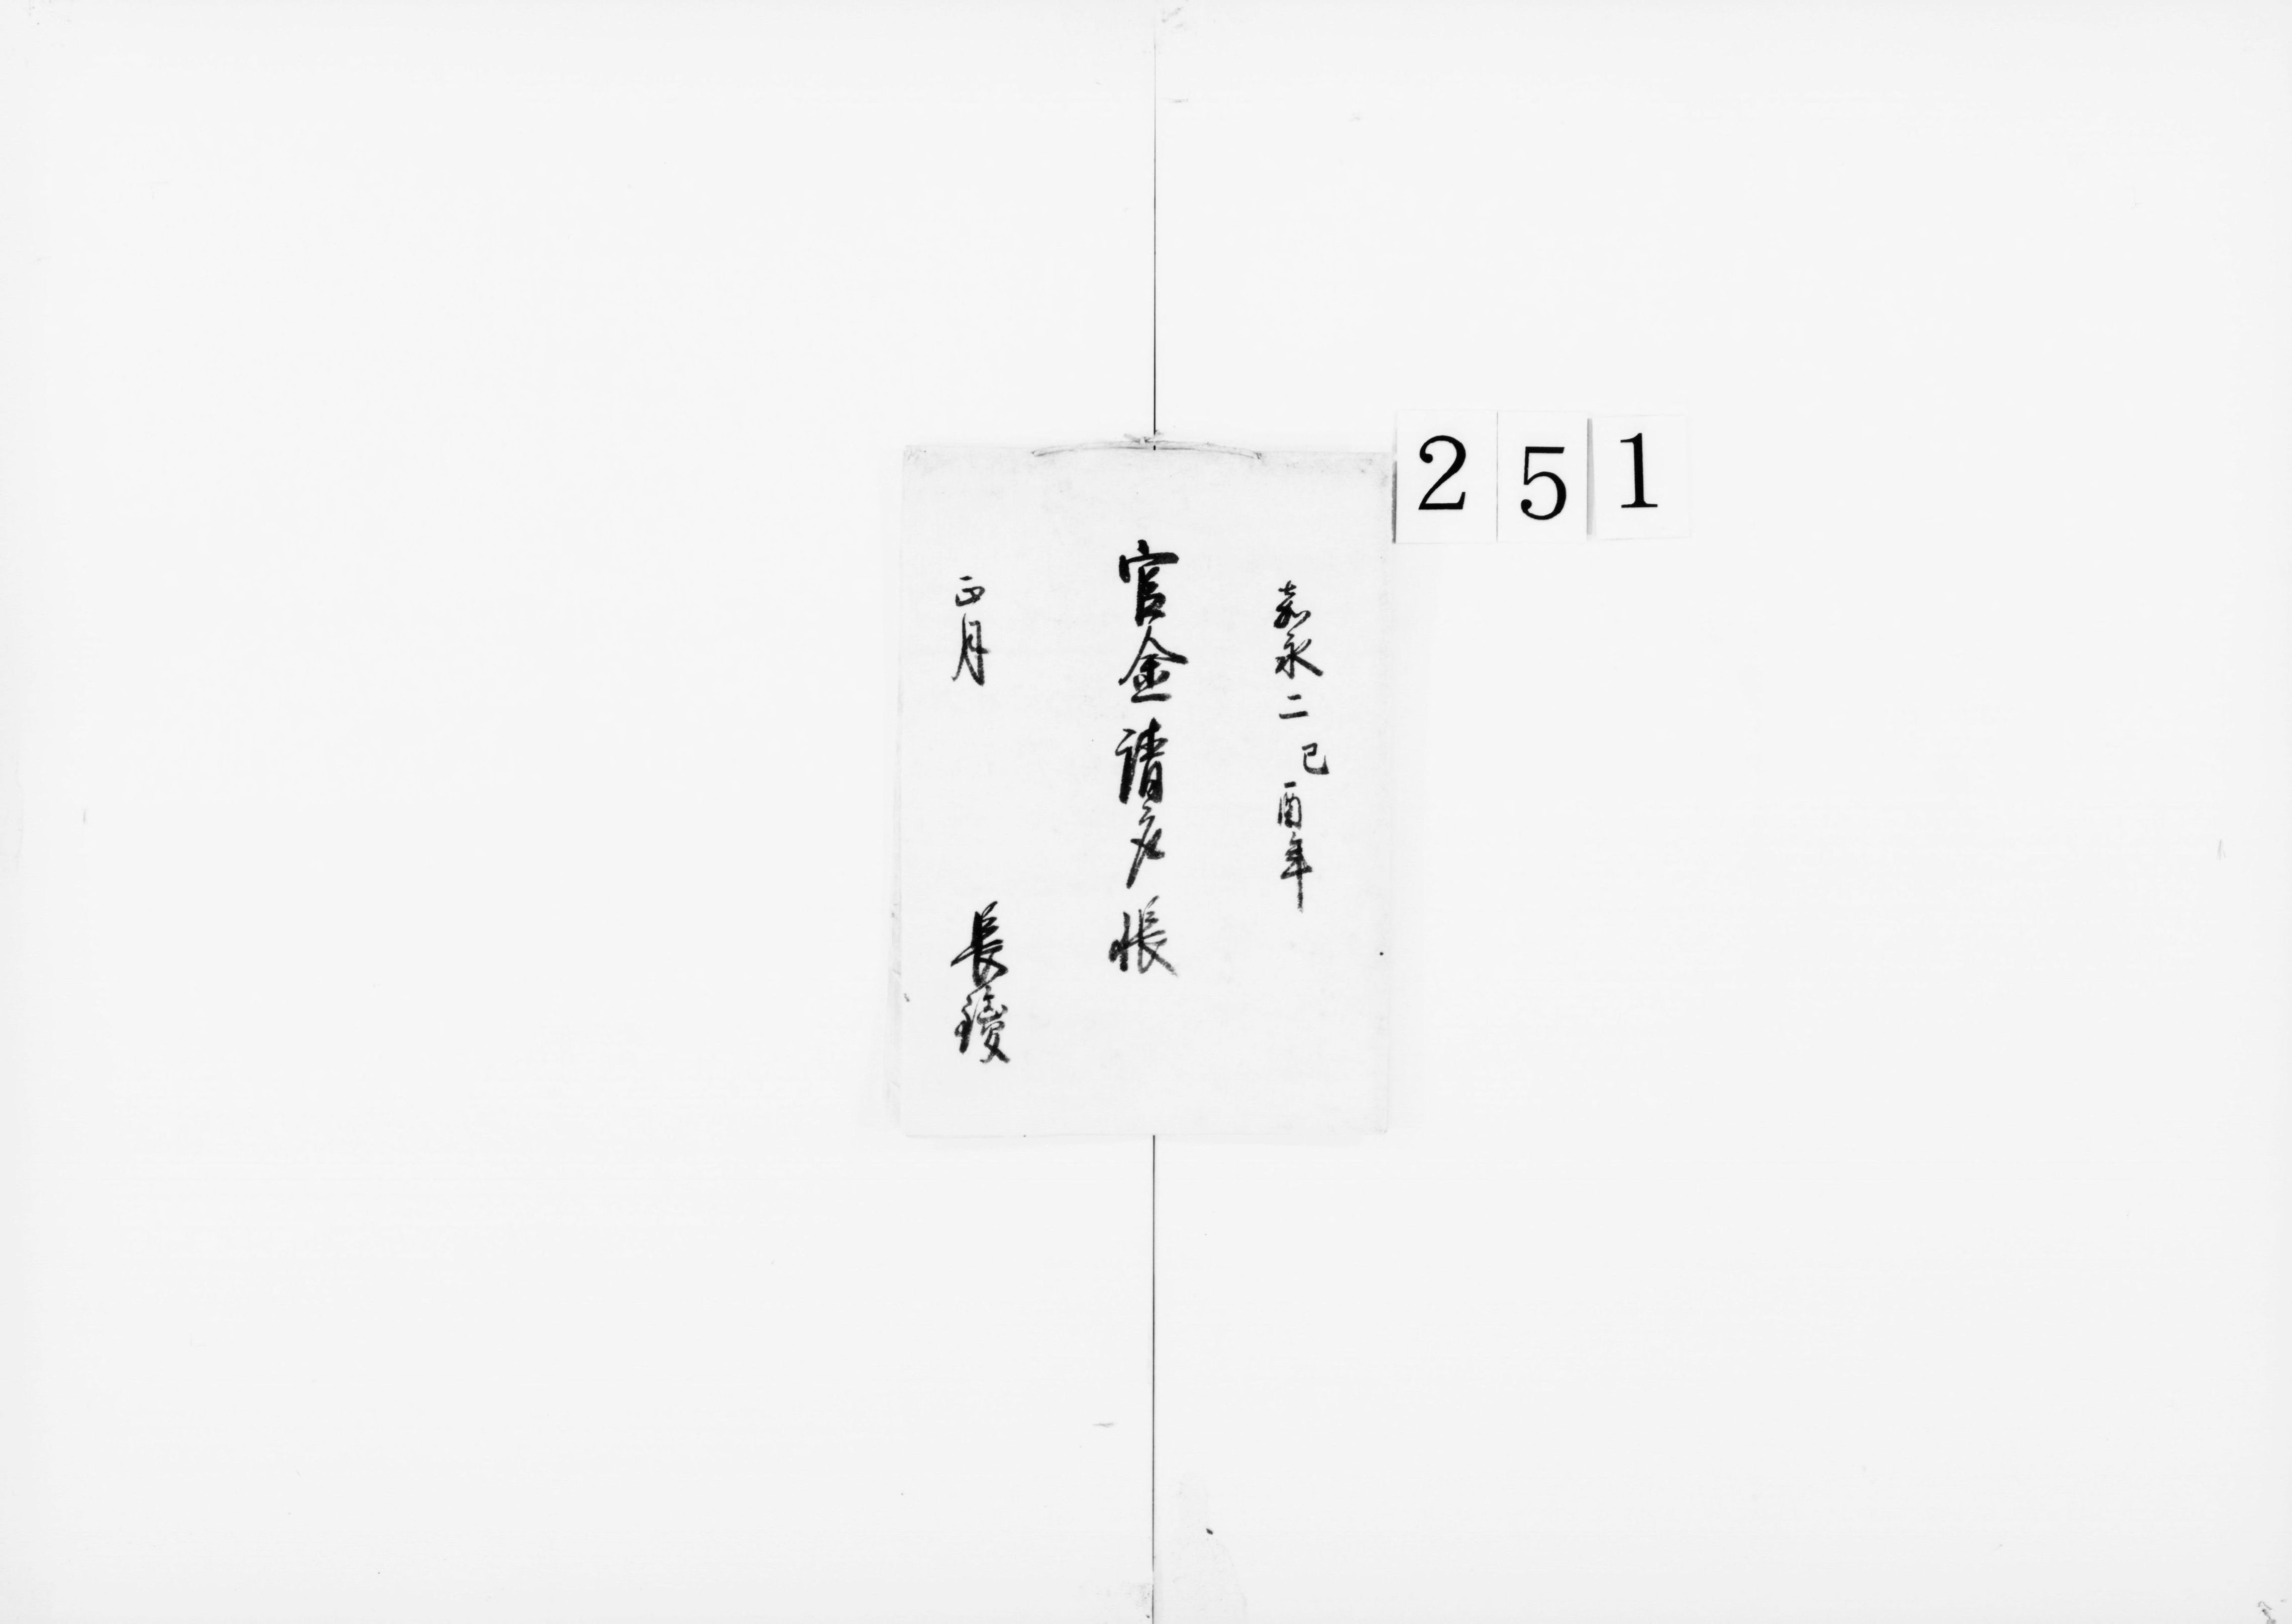 251
嘉永二己酉年
官金請取帳
正月
長